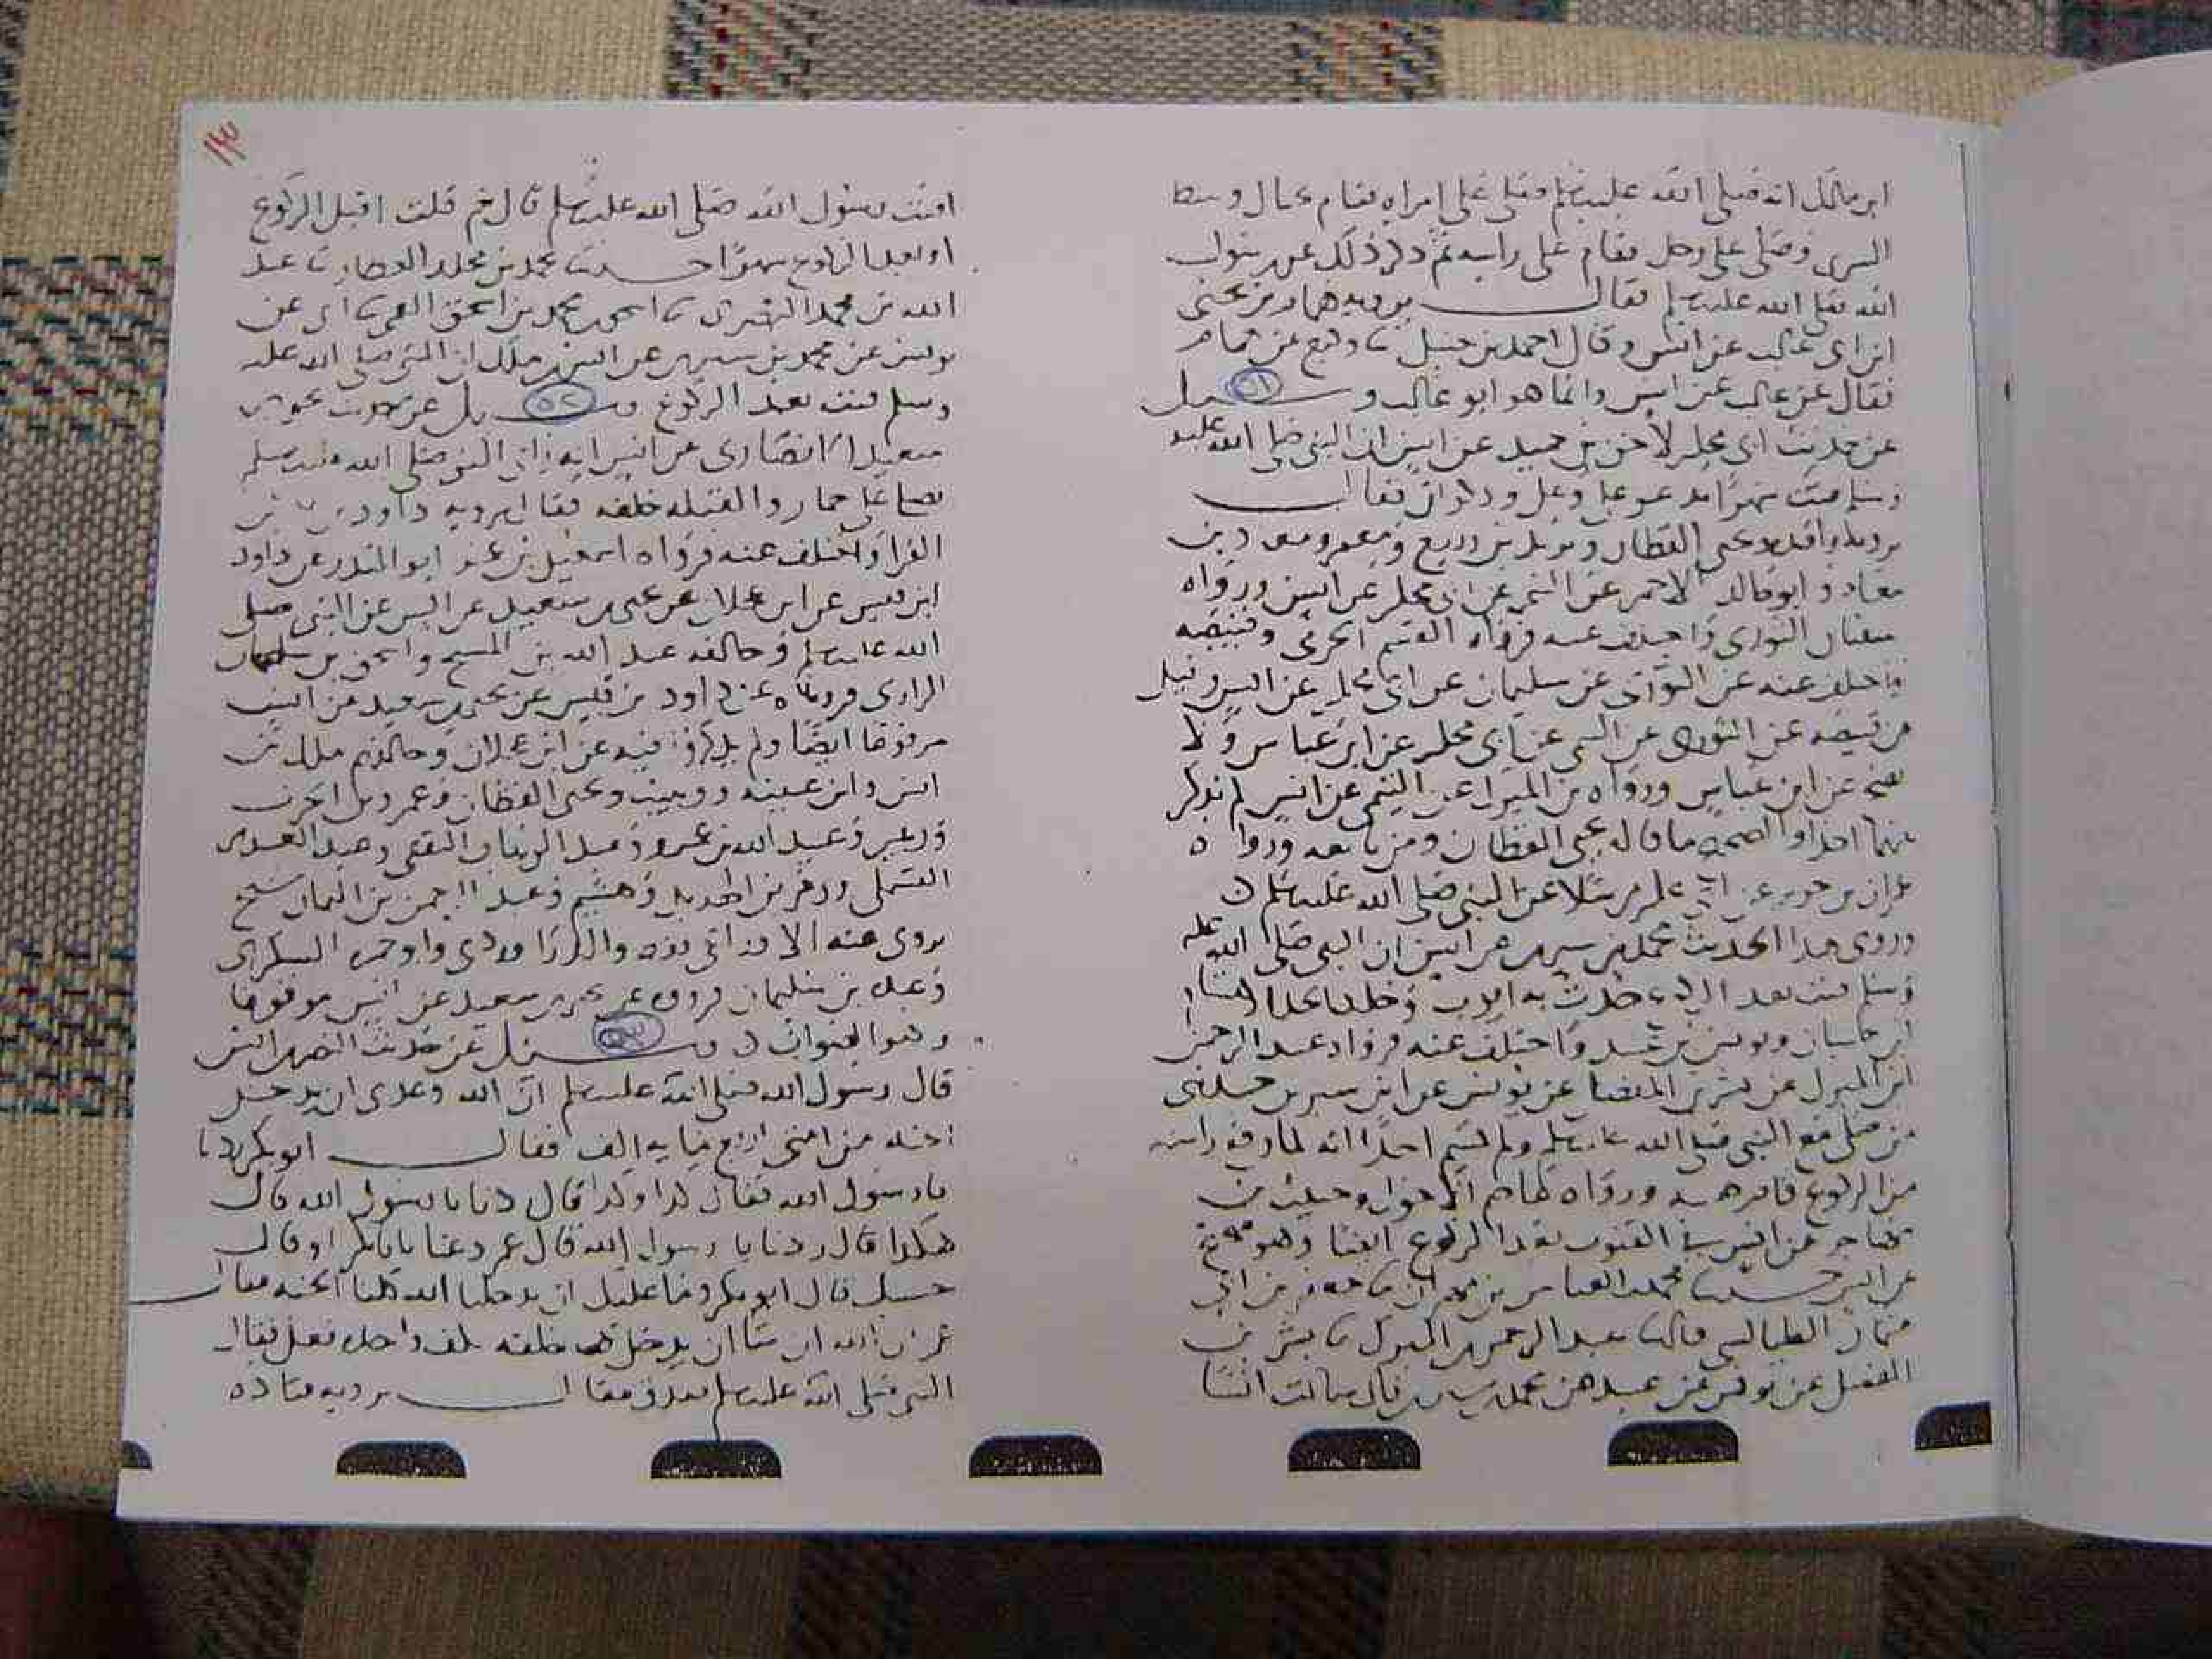 ابن مالك انه صلى الله عليه وسلم وصلى على امراه فقام بحيال وسط
السرير وصلى على رجل فقام على راسه ثم ذكر ذلك عن رسول
الله صلى الله عليه وسلم فقال يرويه همام بن يحيى
ابن ابي غالب عن انس وقال احمد بن حنبل ثنا وكيع عن همام
فقال عن غالب عن انس وانما هو ابو غالب وسيل
٥١
عن حديث ابي مجلز لاحق بن حميد عن انس ان النبي صلى الله عليه
وسلم قنت شهرا يدعو على رعل وذكوان فقال
يرويه يحيى القطان ويزيد بن زريع ومعمر ومعاذ بن
معاذ وابو خالد الاحمر عن التيمي عن ابي مجلز عن انس ورواه
سفيان الثوري واختلف عنه فرواه القسم الجرمي وقبيصه
واختلف عنه عن الثوري عن سليمان عن ابي مجلز عن انس وقيل
عن قبيصه عن الثوري عن التيمي عن ابي مجلز عن ابن عباس ولا
يصح عن ابن عباس ورواه بن المبرك عن التيمي عن انس لم يذكر
بينهما احدا والصحيح ما قاله يحيى القطان ومن تابعه ورواه
عمران بن حدير عن ابي مجلز مرسلا عن النبي صلى الله عليه وسلم
وروى هذا الحديث محمد بن سيرين عن انس ان النبي صلى الله عليه
وسلم قنت بعد الركوع حدث به ايوب وخالد الحذا وهشام
ابن حسان ويونس بن عبيد واختلف عنه فرواه عبد الرحمن
ابن المبرك عن بشر بن المفضل عن يونس عن ابن سيرين حدثني
من صلى مع النبي صلى الله عليه وسلم ولم يسم احدا انه لما رفع راسه
من الركوع قام هنيه ورواه عاصم الاحول وحنظله بن
عن انس في القنوت بعد الركوع ايضا وهو صحيح
عن انس حدثنا محمد بن العباس بن مهران ثنا جعفر بن ابي
عثمان الطيالسي قال ثنا عبد الرحمن بن المبرك ثنا بشر بن
المفضل عن يونس عن عبيد عن محمد بن سيرين قال سالت انسا
١٣
اقنت رسول الله صلى الله عليه وسلم قال نعم قلت اقبل الركوع
او بعد الركوع يسيرا حدثنا محمد بن مخلد العطار ثنا عبد
الله بن محمد ثنا اسحق بن محمد بن اسحق العمي ثنا ابي عن
يونس عن محمد بن سيرين عن انس بن ملك ان النبي صلى الله عليه
وسلم قنت بعد الركوع وسيل عن حديث يحيى بن
٥٢
سعيد الانصاري عن انس انه راى النبي صلى الله عليه وسلم
يصلي على حمار والقبله خلفه فقال يرويه داود بن قيس
الفرا واختلف عنه فرواه اسمعيل بن عمر ابو المنذر عن داود
ابن قيس عن ابن عجلان عن يحيى بن سعيد عن انس عن النبي صلى
الله عليه وسلم وخالفه عبد الله بن المسيح واسحق بن سليمان
الرازي فروياه عن داود بن قيس عن يحيى بن سعيد عن انس
مرفوعا ايضا ولم يذكرا فيه عن ابن عجلان وخالفهم ملك بن
انس وابن عيينه ووهيب ويحيى القطان وعمرو بن الحرث
وزهير وعبيد الله بن عمرو وعبد الوهاب الثقفي وعبد العزيز
القسملي وزفر بن الهذيل وهشيم وعبد الرحمن بن اليمان شيخ
يروي عنه الاوزاعي والدراوردي وابو حمزه السكري
وعبده بن سليمان فرووه عن يحيى بن سعيد عن انس موقوفا
وهو الصواب وسيل عن حديث النضر بن انس
٥٣
قال رسول الله صلى الله عليه وسلم ان الله وعدني ان يدخل
الجنه من امتي اربع مايه الف فقال ابو بكر زدنا
يا رسول الله فقال كذا وكذا قال زدنا يا رسول الله قال
هكذا قال زدنا يا رسول الله قال عمر دعنا يا با بكر او قال
حسبك قال ابو بكر وما عليك ان يدخلنا الله كلنا الجنه فقال
عمر ان الله ان شا ان يدخل خلقه بكف واحده فعل فقال
النبي صلى الله عليه وسلم صدق فقال يرويه قتاده